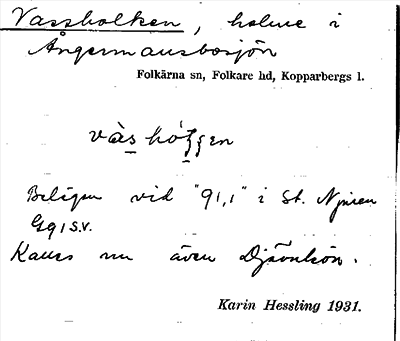 Vassholken, holme i
Ångermansbosjön
Folkärna sn, Folkare hd, Kopparbergs l.
Belägen vid "91,1" i St. Njuren
G91 S.V.
Kallas nu även Djävulsön.
Karin Hessling 1931.